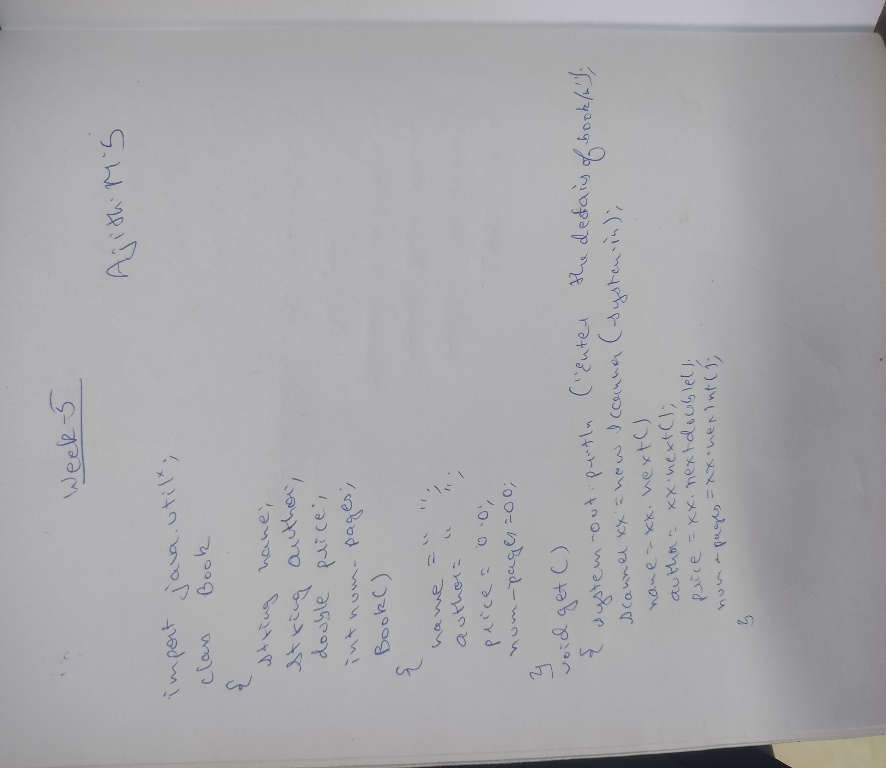 Week-5
Ajith M S
import java.util*;
class Book
{
String name;
String author;
double price;
int num-pages;
Book()
{
name = " ";
author= " ";
price = 0.0;
num-pages=00;
}
void get()
{ system.out.println ("Enter the details of book/n");
Scanner xx = new Scanner (System.in);
name = xx.next()
author = xx.next();
price = xx.nextdouble();
num-pages = xx.nexInt();
}